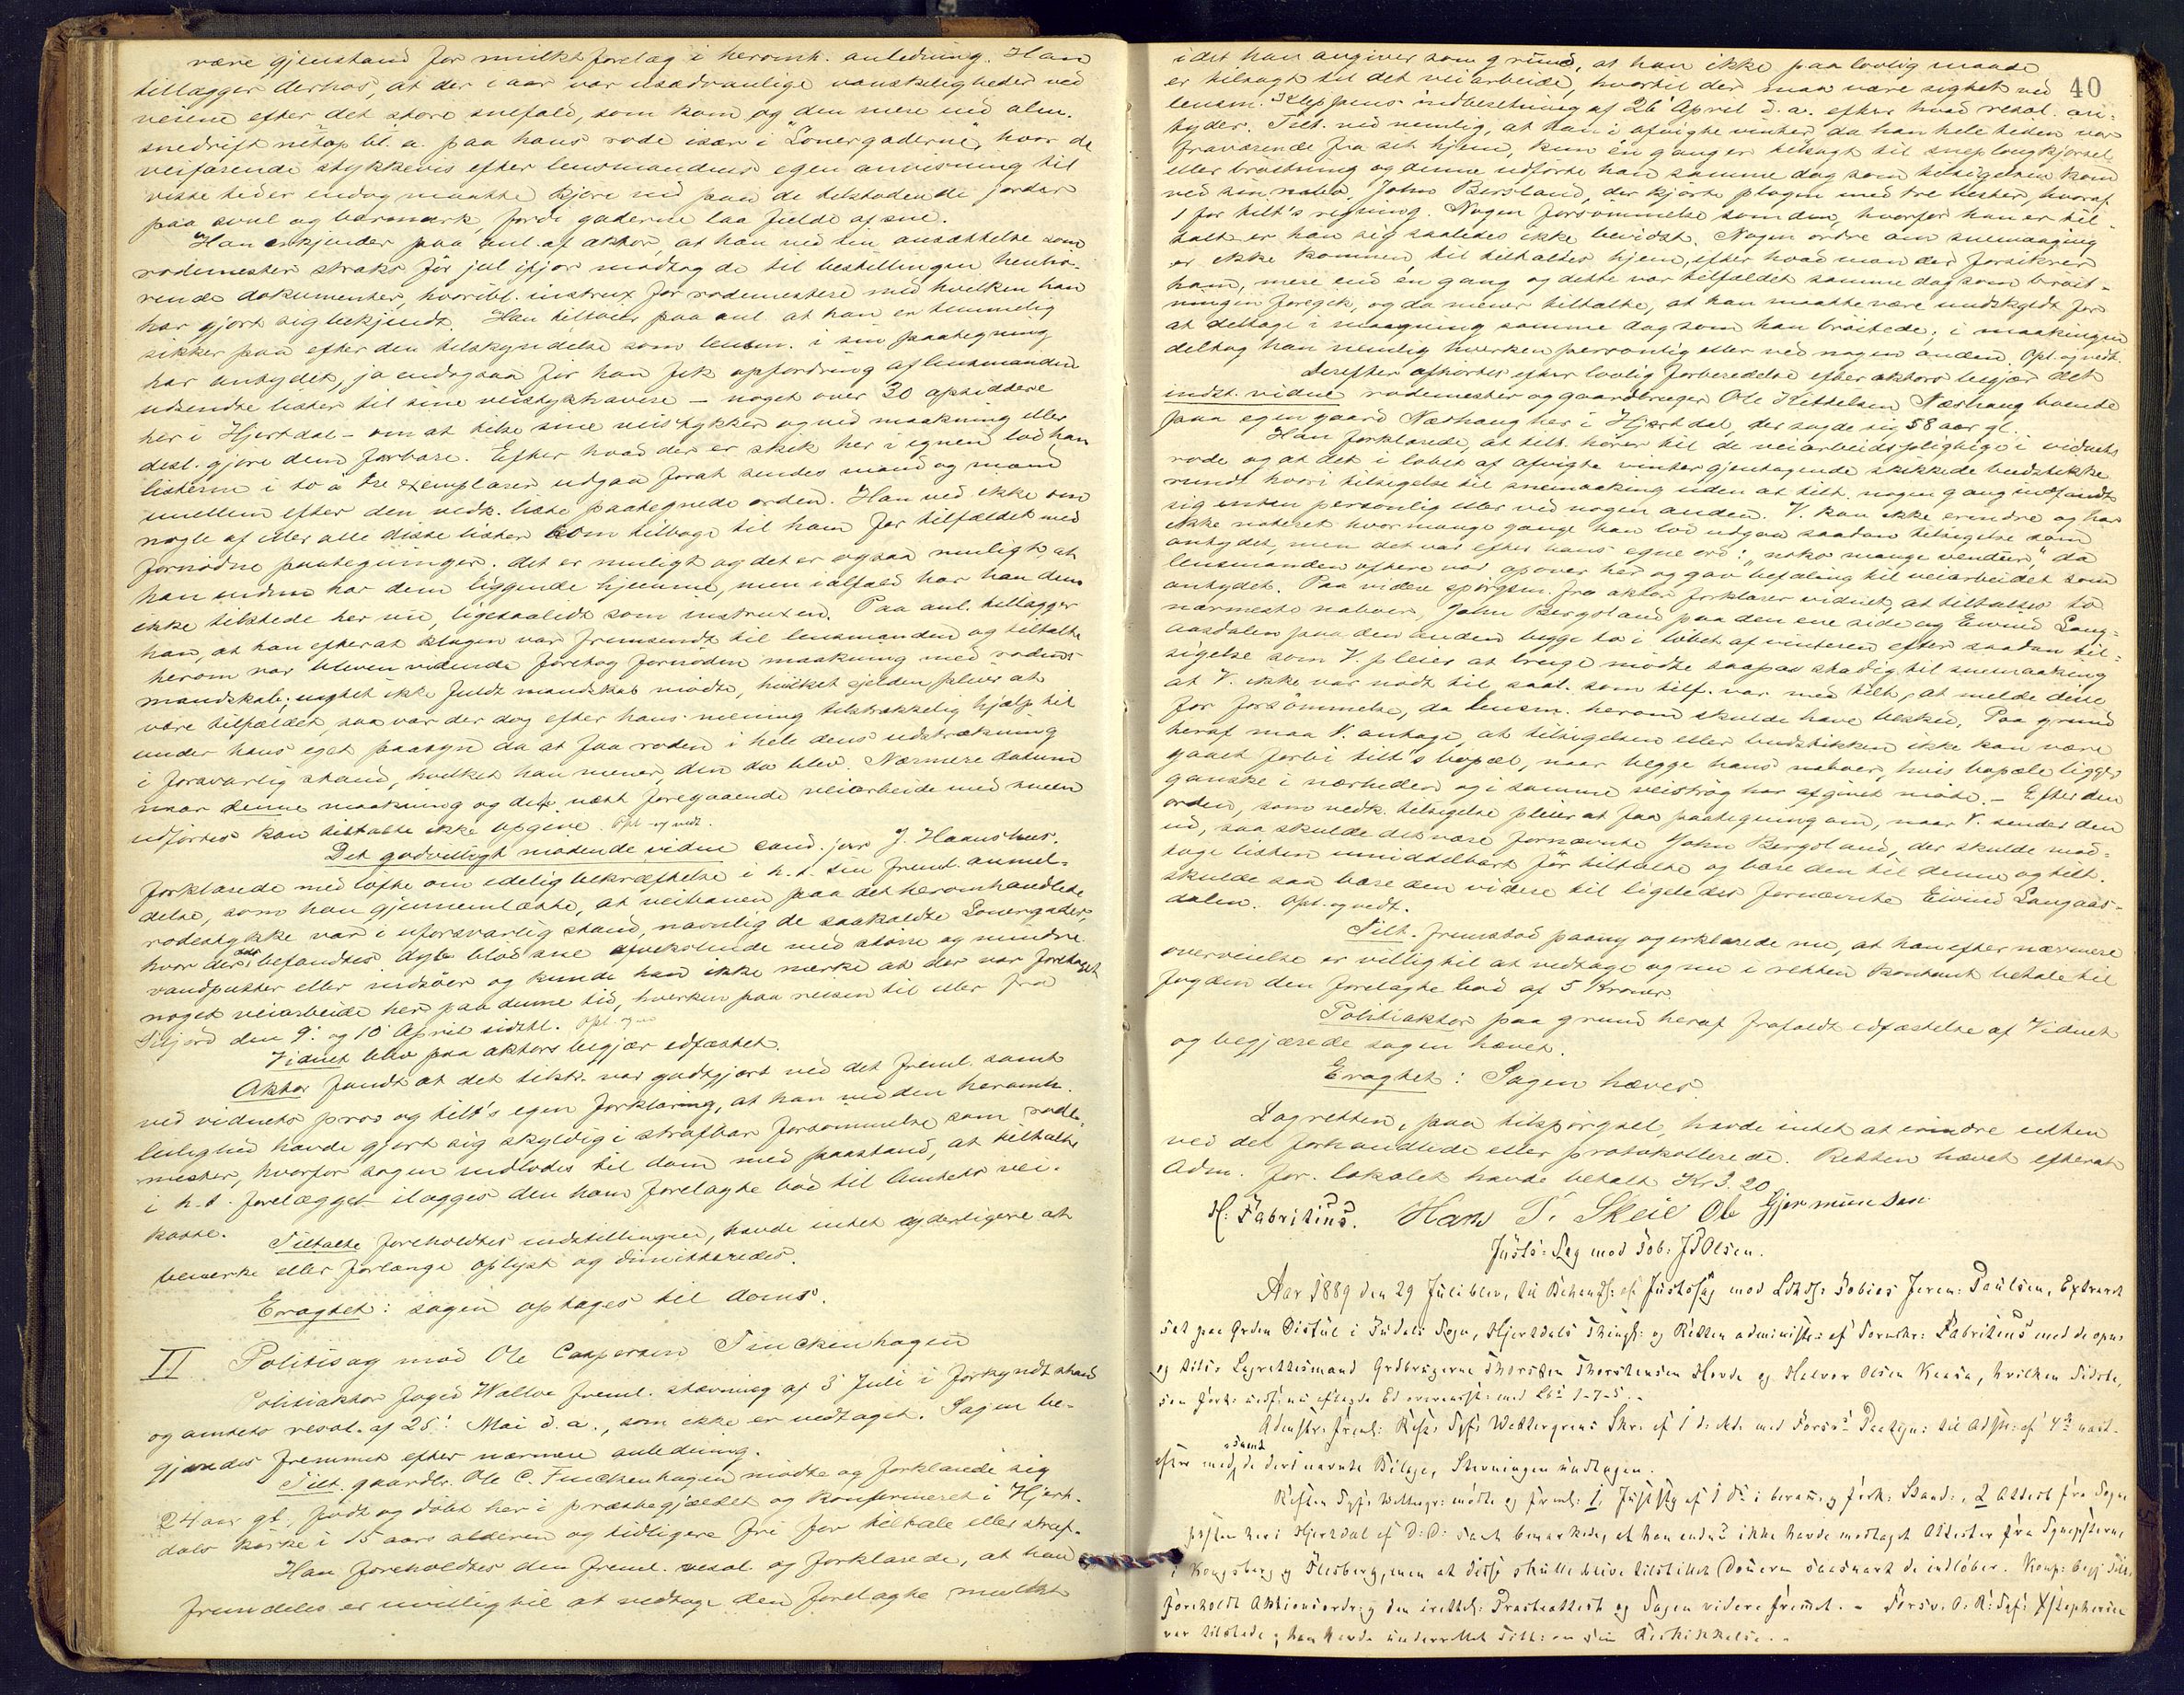 være gjenstand for mulktforelæg i heromh. anledning. Han
tillægger derhos, at der i aar var usædvanlige vanskeligheder ved
veiene efter det store snefald, som kom og den mere end alm.
snedrift netop bl. a. paa hans rode især i "Lonergaderne", hvor de
veifarende stykkevis efter lensmandens egen anvisning til
visse tider endog maatte kjøre ud paa de tilstødende jorder
paa svul og barmark, fordi gaderne laa fulde af sne.
Han erkjender paa anl. af aktor, at han ved sin ansættelse som
rodemester straks før jul ifjor modtog de til bestillingen henhø-
rende dokumenter, hvoribl. instrux for rodemestere med hvilken han
har gjort sig bekjendt. Han tilføier paa anl. at han er temmelig
sikker paa efter den tilskyndelse som lensm. i sin paategning
har antydet, ja endogsaa før han fik opfordring af lensmanden
udsendte lister til sine veistykhavere – noget over 30 opsiddere
her i Hjertdal – om at tilse sine veistykker og ved maakning eller
desl. gjøre dem farbare. Efter hvad der er skik her i egnen lod han
listerne i to à tre exemplarer udgaa forat sendes mand og mand
imellem efter den vedk. liste paategnede orden. Han ved ikke om
nogle af eller alle disse lister kom tilbage til ham før tilfældet med
fornødne paategninger. Det er muligt og det er ogsaa muligt at
han endnu har dem liggende hjemme, men ialfald har han dem
ikke tilstede her nu, ligesaalidt som instruxen. Paa anl. tillægger
han, at han efterat klagen var fremsendt til lensmanden og tiltalte
herom var bleven vidende foretog fornøden maakning med rodens
mandskab; uagtet ikke fuldt mandskab mødte, hvilket sjelden pleier at
være tilfældet, saa var der dog efter hans mening tilstrækkelig hjælp til
under hans eget paasyn da at faa roden i hele dens udstrækning
i forsvarlig stand, hvilket han mener, den da blev. Nærmere datum
naar denne maakning og det næst foregaaende veiarbeide med sneen
udførtes kan tiltalte ikke opgive. Opl. og vedt.
Det godvilligt mødende vidne cand. jur J. Haanshus.
forklarede med løfte om edelig bekræftelse i h. t. sin freml. anmel-
delse, som han gjennemlæste, at veibanen paa det heromhandlede
rodestykke var i uforsvarlig stand, navnlig de saakaldte Lonergader,
hvor der befandtes dyb blød sne afvekslende med større og mindre
vandpytter eller indsøer og kunde han ikke mærke at der var foretaget
noget veiarbeide her paa denne tid, hverken paa reisen til eller fra
Siljord den 9. og 10 April sidstl. Opl. og v.
Vidnet blev paa aktors begjær edfæstet.
Aktor fandt at det tilstr. var godtgjort ved det freml. samt
ved vidnets prov og tilt's egen forklaring, at han ved den heromh.
leilighed havde gjort sig skyldig i strafbar forsømmelse som rode-
mester, hvorfor sagen indlodes til dom med paastand, at tiltalte
i h. t. forelægget ilægges den ham forelagte bod til Amtets vei-
kasse.
Tiltalte foreholdtes indstillingen, havde intet yderligere at
bemerke eller forlange oplyst og dimitteredes.
Eragtet: sagen optages til doms.
II Politisag mod Ole Caspersen Finckenhagen
Politiaktor foged Walløe freml. stævning af 3 Juli i forkyndt stand
og amtets resol. af 25. Mai d. a., som ikke er vedtaget. Sagen be-
gjæredes fremmet efter nærmere anledning.
Tilt. gaardbr. Ole C. Finckenhagen mødte og forklarede sig
24 aar gl., født og døbt her i præstegjældet og konfirmeret i Hjert-
dals kirke i 15 aars alderen og tidligere fri for tiltale eller straf.
Han foreholdtes den freml. resol. og forklarede, at han
fremdeles er uvillig til at vedtage den forelagte mulkt
40
idet han angiver som grund, at han ikke paa lovlig maade
er tilsagt til det veiarbeide, hvortil der maa være sigtet ved
lensm. Kleppens indberetning af 26 April d. a. efter hvad resol. an-
tyder. Tilt. ved nemlig, at han i afvigte vinter, da han hele tiden var
fraværende fra sit hjem, kun én gang er tilsagt til sneplougkjørsel
eller brøitning og denne udførte han samme dag som tilsigelsen kom
ved sin nabo, John Bersland, der kjørte plogen med tre hester, hvoraf
1 for tilt's regning. Nogen forsømmelse som den, hvorfor han er til-
talt er han sig saaledes ikke bevidst. Nogen ordre om snemaaging
er ikke kommen til tiltaltes hjem, efter hvad man der forsikrer
ham, mere end én gang og dette var tilfældet samme dag som brøit-
ningen foregik, og da mener tiltalte, at han maatte være undskyldt for
at deltage i maagning samme dag som han brøitede; i maakningen
deltog han nemlig hverken personlig eller ved nogen anden. Opl. og vedt.
Derefter afhørtes efter lovlig forberedelse efter aktors begjær det
indst. vidne rodemester og gaardbruger Ole Kittelsen Næshaug boende
paa egen gaard Næshaug her i Hjertdal, der sagde sig 58 aar gl.
Han forklarede, at tilt. hører til de veiarbeidspligtige i vidnets
rode og at det i løbet af afvigte vinter gjentagende skikkede budstikke
rundt hvori tilsigelse til snemaaking uden at tilt. nogen gang indfandt
sig enten personlig eller ved nogen anden. V. kan ikke erindre og har
ikke noteret hvormange gange han lod udgaa saadan tilsigelse som
antydet, men det var efter hans egne ord: "nokso mange vendur", da
lensmanden oftere var opover her og gav befaling til veiarbeidet som
antydet. Paa videre spørgsm. fra aktor forklarer vidnet, at tiltaltes to
nærmeste naboer, John Bergsland paa den ene side og Eivind Lang-
aasdalen paa den anden begge to i løbet af vinteren efter saadan til-
sigelse som V. pleier at bruge mødte saapas stadig til snemaaking
at V. ikke var nødt til saal. som tilf. var med tilt., at melde disse
for forsømmelse, da lensm. herom skulde have besked. Paa grund
heraf maa V. antage, at tilsigelsen eller budstikken ikke kan være
gaaet forbi tilt's bopæl, naar begge hans naboer, hvis bopæle ligger
ganske i nærheden og i samme veistrøg har afgivet møde. – Efter den
orden, som vedk. tilsigelse pleier at faa paategning om, naar V. sender den
ud, saa skulde det være fornævnte John Bergsland, der skulde mod-
tage listen umiddelbart før tiltalte og bære den til denne og tilt.
skulde saa bære den videre til ligeledes fornævnte Eivind Langaas-
dalen. Opl. og vedt.
Tilt. fremstod paany og erklærede nu, at han efter nærmere
overveielse er villig til at vedtage og nu i retten kontant betale til
fogden den forelagte bod af 5 Kroner.
Politiaktor paa grund heraf frafaldt edfæstelse af Vidnet
og begjærede sagen hævet.
Eragtet: Sagen hæves.
Lagretten, paa tilspørgsel, havde intet at erindre enten
ved det forhandlede eller protokollerede. Retten hævet efterat
Adm. for lokalet havde betalt Kr 3.20
H. Fabritius. Hans T. Skeie Ole Gjermundsen
Justs: Sag mod Tob: J Olsen.
Aar 1889 den 29 Juli blev, til Behandl: af Justssag mod Tobias Jeren: Paulsen, Extraret
sat paa Grden Bistul i Tudals Sogn, Hjertdals Thingl: og Retten administr: af Sornskr: Fabritius med de opn:
og tilts Lagrettesmænd Grdbrugerne Thorsten Thorstensen Hovde og Halvor Olsen Kaasa, hvilken Sidste,
efter med de deri nævnte Bilage, Stevningen undtagen.
i Kongsberg og Flesberg, men at disse skulle blive tilstillet Domeren saasnart de indløber.
foreholdt Aktionsordre og den irettel: Præsteattest og Sagen videre fremmet.
var tilstede; han havde underrettet Tilt: om sin Beskikkelse.